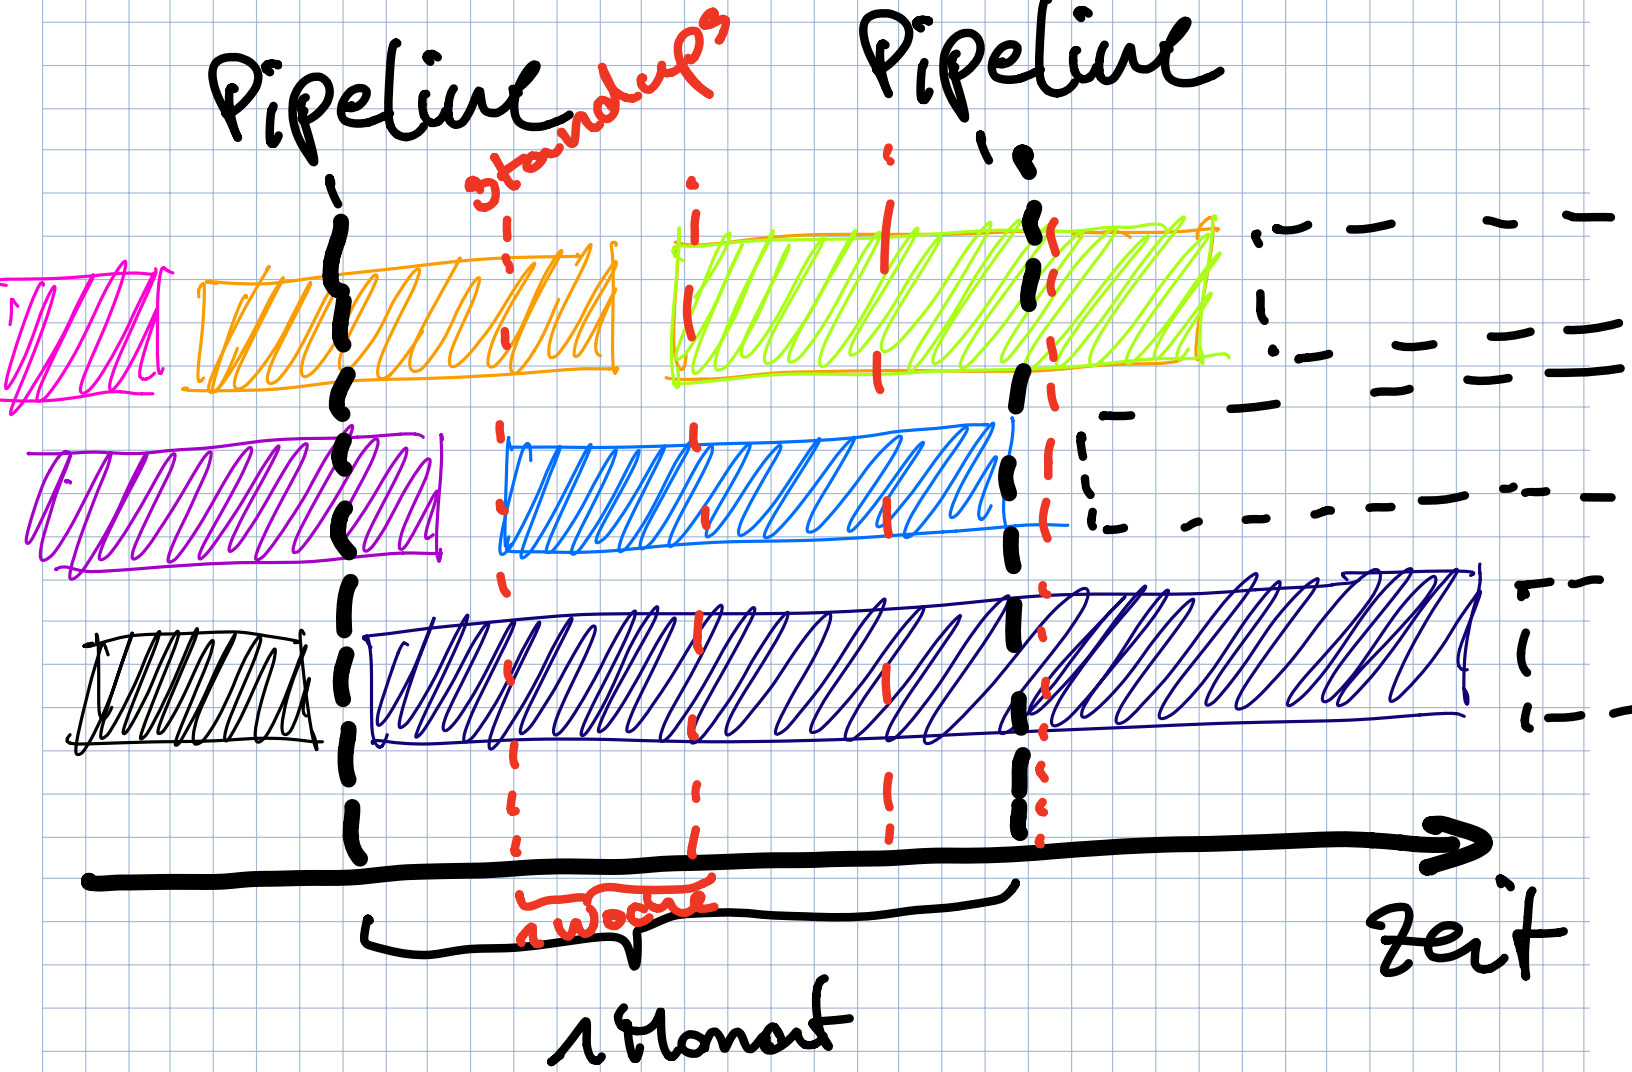 Pipeline
standups
Pipeline
1 Woche
1 Monat
Zeit